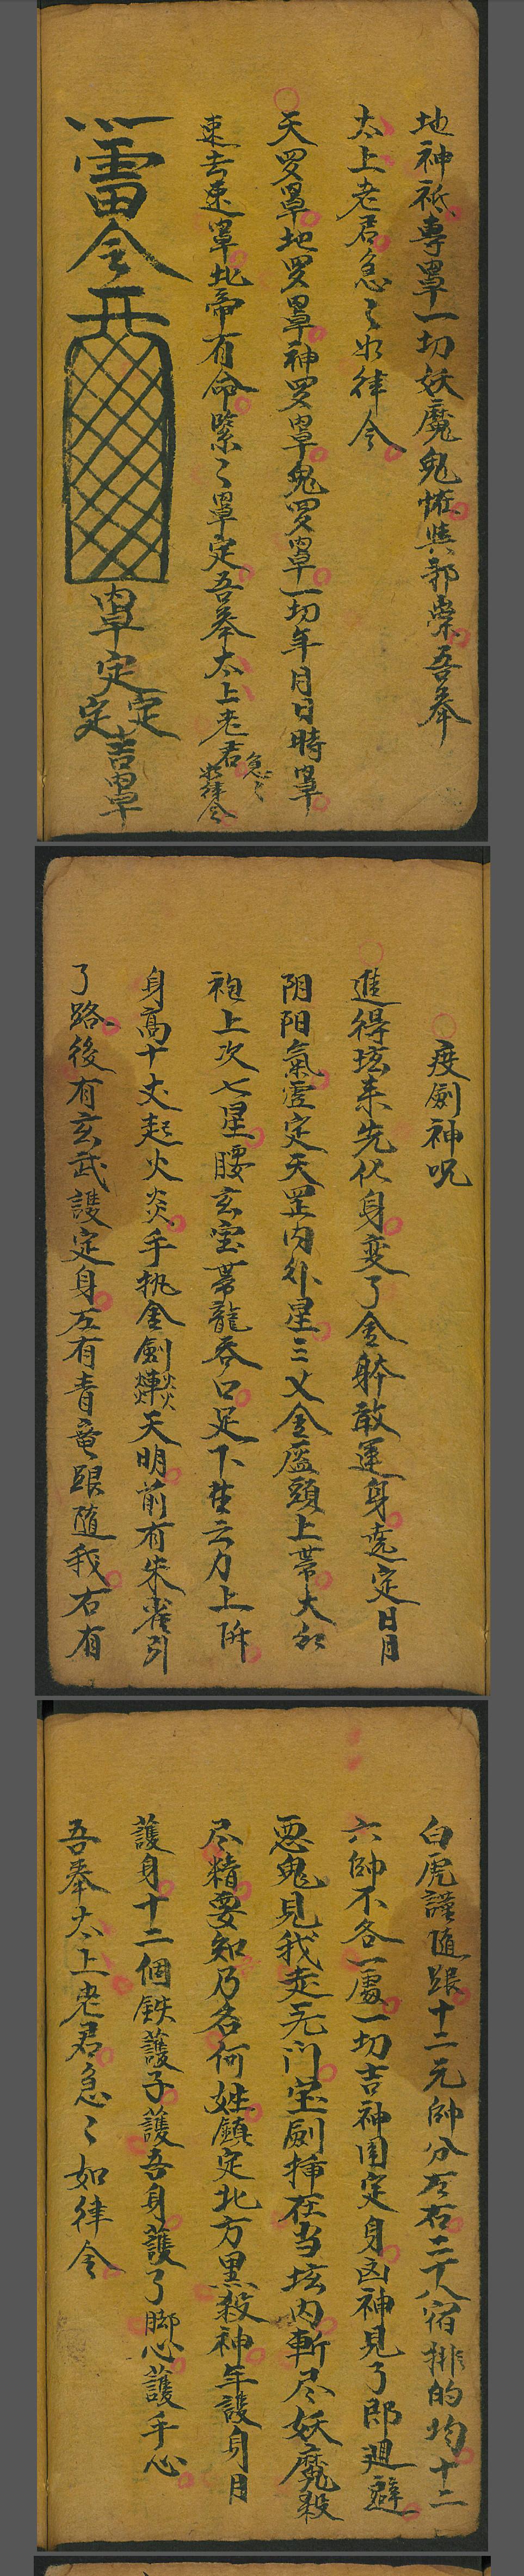 地神祇專罩一切妖魔鬼怪與邪祟吾奉
太上老君急々如律令
天罗罩地罗罩神罗罩鬼罗罩一切年月日時罩
東去速罩北帝有命緊々罩定吾奉太上老君急々如律令
雷令
罩定定定吉罩
度劍神咒
進得坛来先化身变了金躰敢運身遶定日月
阴阳氣雲定天罡内外星三丈金盔頭上带大紅
袍上次七星腰玄宝带龍吞口足下生云力上
身高十丈起火炎手执金劍天明前有朱雀引
了路後有玄武護定身左有青竜跟随我右有
白虎謹随跟十二元帥分左右二十八宿排的均十二
六帥不各一處一切吉神围定身凶神見了即廻避
恶鬼見我走无门宝劍挿在当坛内斬尽妖魔殺
尽精要知乃名何姓鎮定北方黑殺神年護身月
護身十二個鉄護子護吾身護了脚心護手心
吾奉太上老君急々如律令